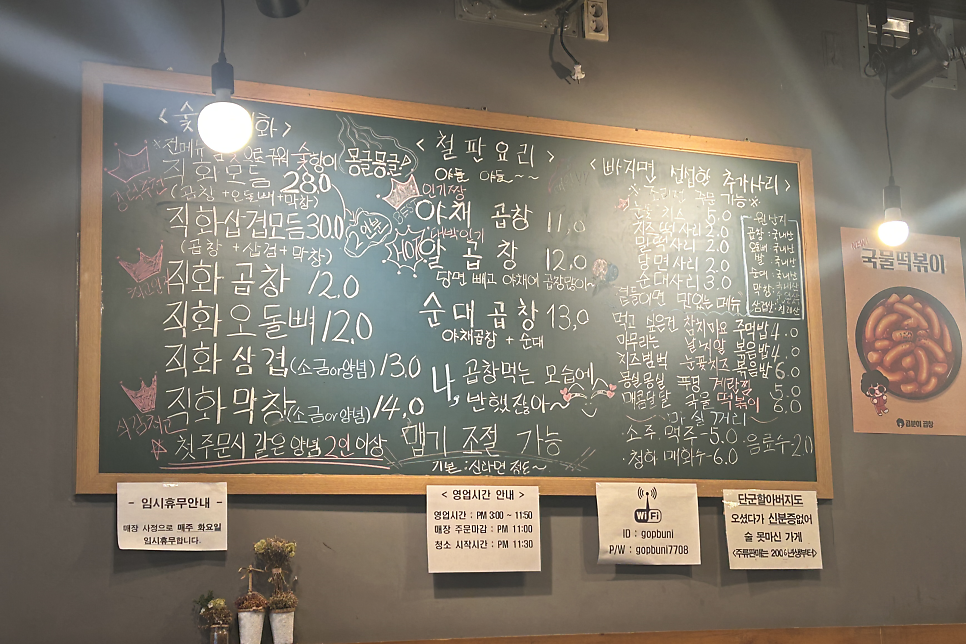 <숯 화>
직화모듬 28.0
(곱창+오돌뼈+막창)
직화삼겹모듬 30.0
(곱창+삼겹+막창)
직화 곱창 12.0
직화오돌뼈 12.0
직화 삼겹 (소금or양념) 13.0
직화막창 (소금or양념) 14.0
첫 주문시 같은 양념 2인 이상
몽글몽글
<철판요리>
야들 야들~~
인기짱
야채 곱창 11,0
대박인기
알 곱 창 12,0
당면 빼고 야채에 곱창많이~
순대곱창 13,0
야채곱창 + 순대
나, 곱창먹는 모습에
반했잖아~
맵기 조절 가능
기본:신라면 정도~
<빠지면 섭섭한 추가사리>
눈꽃 치즈 5.0
치즈떡사리 2.0
말떡사리 2.0
당면사리 2.0
순대사리 3.0
곁들이면 맛있는 메뉴
먹고 싶은건 참치마요 주먹밥 4.0
마무리는 날치알 볶음밥 4.0
치즈범벅 눈꽃치즈 볶음밥 6.0
몽실몽실 뚝배기 계란찜 5.0
매콤달달 국물 떡볶이 6.0
마실거리
·소주.맥주-5.0 ·음료수-2.0
·청하 매화수-6.0
-원산지-
곱창:국내산
오돌뼈:국내산
발:국내산
순대:국내산
막창:
삼겹살:칠레산
국물떡볶이
곱분이 곱창
- 임시휴무안내 -
매장 사정으로 매주 화요일
임시휴무합니다.
< 영업시간 안내 >
영업시간 : PM 3:00 ~ 11:50
매장 주문마감 : PM 11:00
청소 시작시간 : PM 11:30
WiFi
ID : gopbuni
P/W : gopbuni7708
단군할아버지도
오셨다가 신분증없어
술 못마신 가게
<주류판매는 2006년생부터>